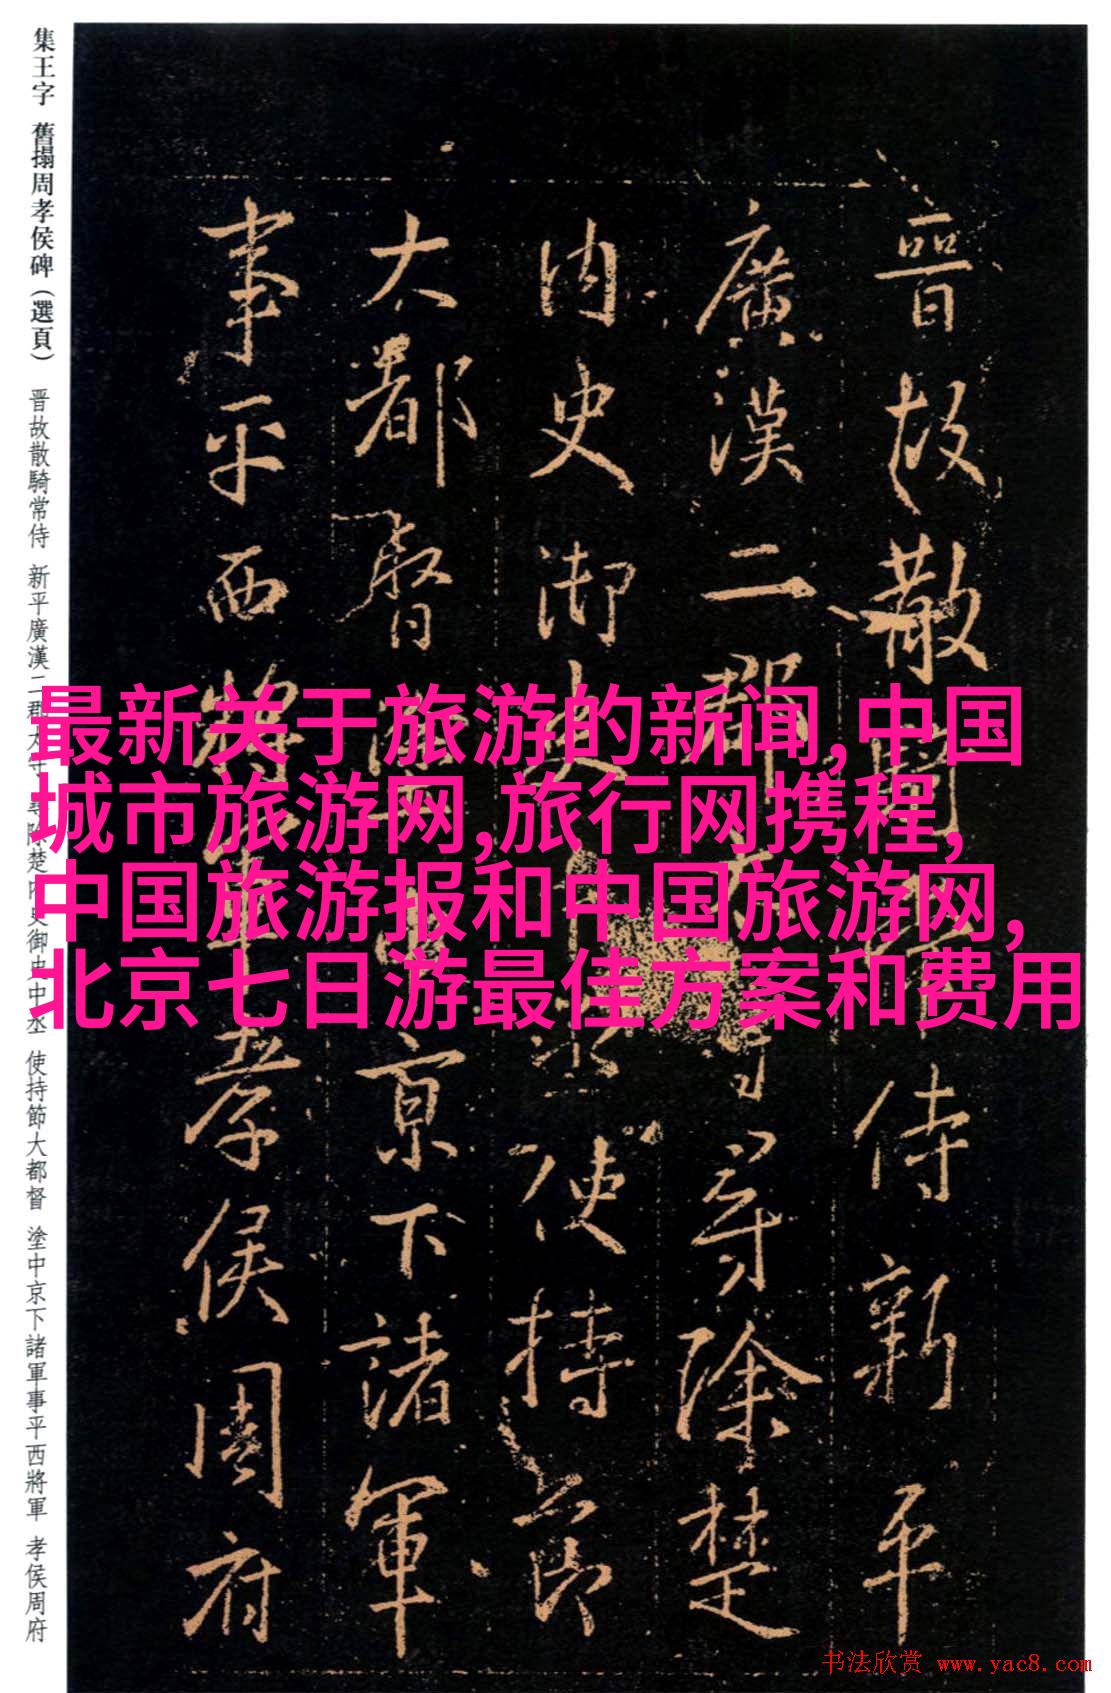 晉故散騎常侍新平
廣漢二郡太守尋除楚
内史御史中丞使持節
大都督塗中京下諸軍
事平西將軍孝侯周府
集王字 舊搨周孝侯碑(選頁) 晋故散騎常侍 新平廣漢二郡太守 尋除楚内史御史中丞 使持節大都督 塗中京下諸軍事平西將軍 孝侯周府
最新关于旅游的新闻,中国
城市旅游网,旅行网携程,
中国旅游报和中国旅游网,
北京七日游最佳方案和费用
书法欣赏 www.yac8.com